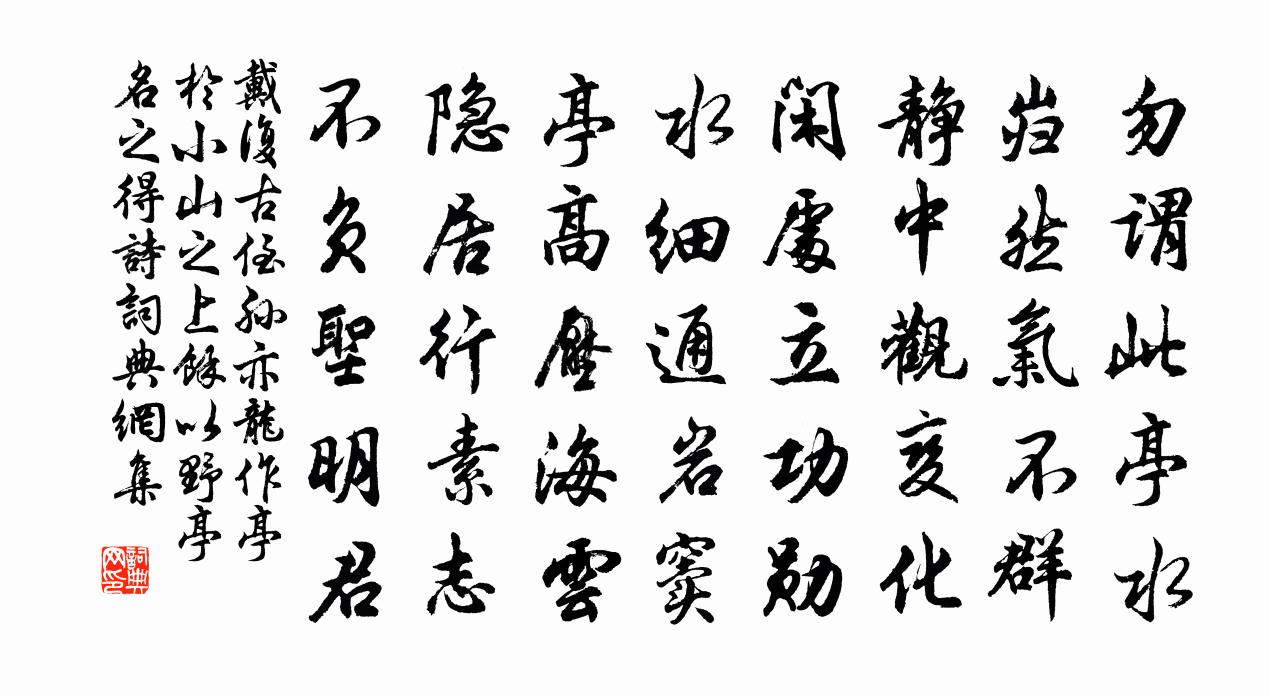 勿谓此亭水
岿然氣不群
静中觀变化
闲處立功勋
水细通岩窦
亭高壓海雲
隐居行素志
不负聖明君
戴復古侄孙亦龍作亭
於小山之上餘以野亭
名之得詩詞典網集
詞典
网印